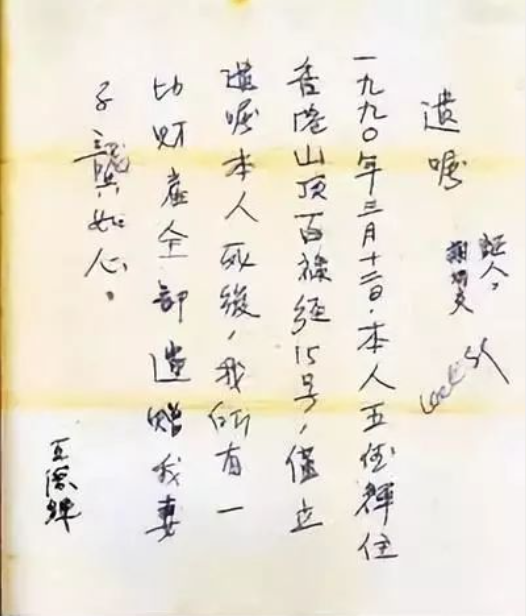 遺囑
証人，
謝炳炎
一九九〇年三月十二日，本人王德輝住
香港山頂百祿徑15号，僅立
遺囑本人死後，我所有一
切財產全部遺贈我妻
子龔如心。
王德輝